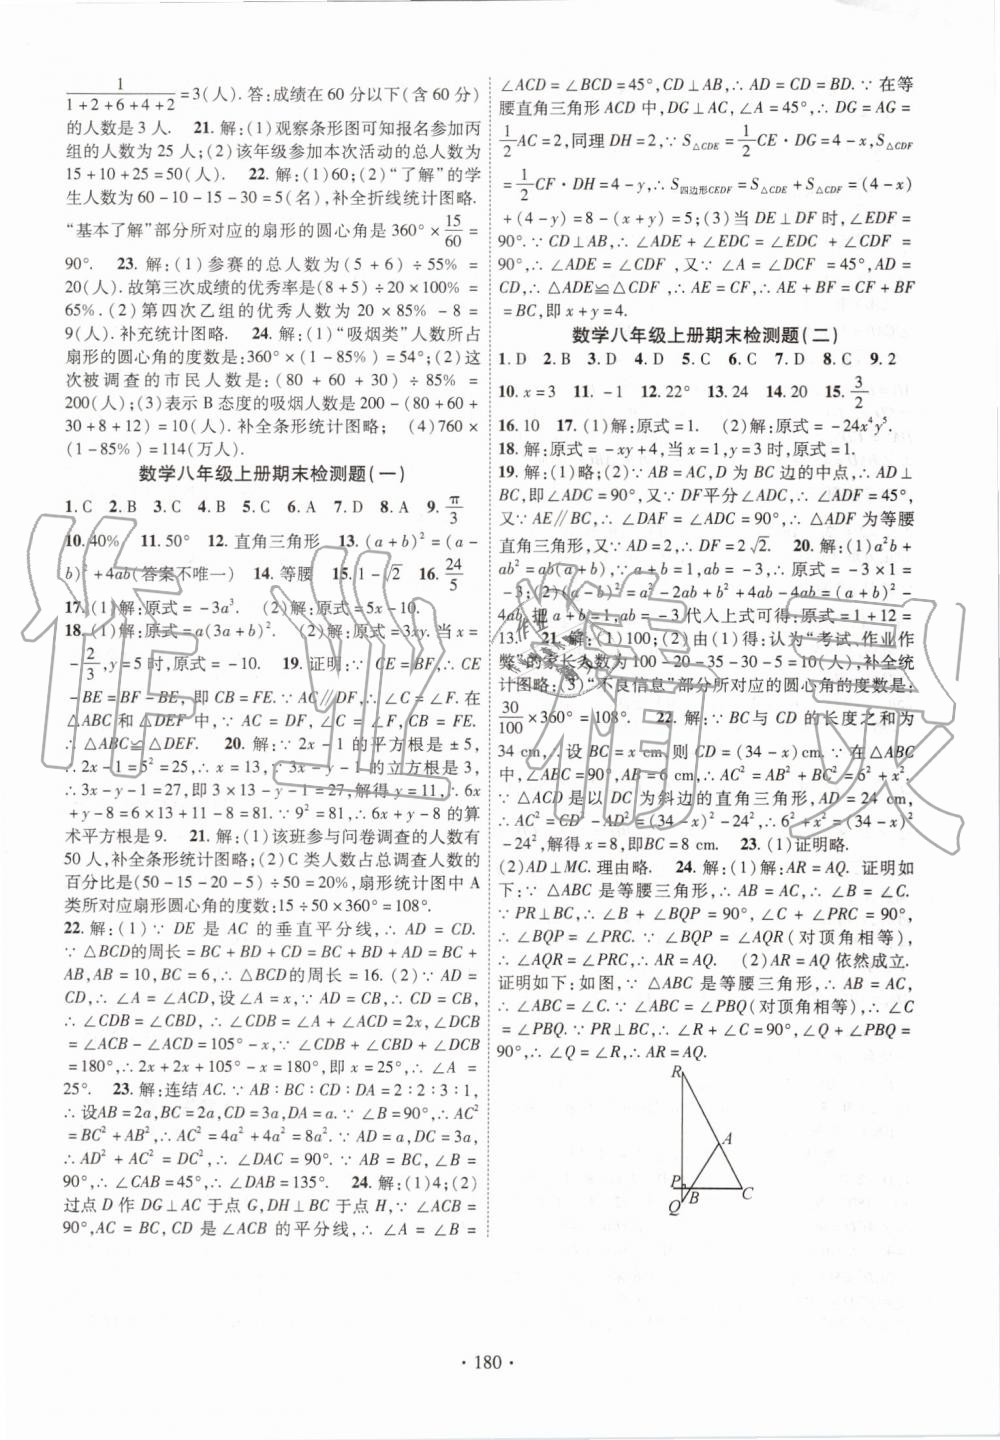 1/(1+2+6+4+2)=3(人). 答:成绩在60分以下(含60分)
的人数是3人. 21. 解:(1)观察条形图可知报名参加丙
组的人数为25人;(2)该年级参加本次活动的总人数为
15+10+25=50(人). 22. 解:(1)60;(2)“了解”的学
生人数为60-10-15-30=5(名),补全折线统计图略.
“基本了解”部分所对应的扇形的圆心角是360°×15/60=
90°. 23. 解:(1)参赛的总人数为(5+6)÷55%=
20(人). 故第三次成绩的优秀率是(8+5)÷20×100%=
65%. (2)第四次乙组的优秀人数为20×85%-8=
9(人). 补充统计图略. 24. 解:(1)“吸烟类”人数所占
扇形的圆心角的度数是:360°×(1-85%)=54°;(2)这
次被调查的市民人数是:(80+60+30)÷85%=
200(人);(3)表示B态度的吸烟人数是200-(80+60+
30+8+12)=10(人). 补全条形统计图略; (4)760×
(1-85%)=114(万人).
数学八年级上册期末检测题(一)
1. C 2. B 3. C 4. B 5. C 6. A 7. D 8. A 9. π/3
10. 40% 11. 50° 12. 直角三角形 13. (a+b)²=(a-
b)²+4ab(答案不唯一) 14. 等腰 15. 1-√2 16. 24/5
17. (1)解:原式=-3a³. (2)解:原式=5x-10.
18. (1)解:原式=a(3a+b)². (2)解:原式=3xy. 当x=
-2/3,y=5时,原式=-10. 19. 证明:∵CE=BF,∴CE
-BE=BF-BE,即CB=FE. ∵AC∥DF,∴∠C=∠F. 在
△ABC和△DEF中,∵AC=DF,∠C=∠F,CB=FE.
∴△ABC≌△DEF. 20. 解:∵2x-1的平方根是±5,
∴2x-1=5²=25,∴x=13,∵3x-y-1的立方根是3,
∴3x-y-1=27,即3×13-y-1=27,解得y=11,∴6x
+y-8=6×13+11-8=81. ∵9²=81,∴6x+y-8的算
术平方根是9. 21. 解:(1)该班参与问卷调查的人数有
50人,补全条形统计图略;(2)C类人数占总调查人数的
百分比是(50-15-20-5)÷50=20%,扇形统计图中A
类所对应扇形圆心角的度数:15÷50×360°=108°.
22. 解:(1)∵DE是AC的垂直平分线,∴AD=CD.
∵△BCD的周长=BC+BD+CD=BC+BD+AD=BC+
AB,AB=10,BC=6,∴△BCD的周长=16. (2)∵AD=
CD,∴∠A=∠ACD,设∠A=x,∵AD=CB,∴CD=CB,
∴∠CDB=∠CBD,∴∠CDB=∠A+∠ACD=2x,∠DCB
=∠ACB-∠ACD=105°-x,∵∠CDB+∠CBD+∠DCB
=180°,∴2x+2x+105°-x=180°,即x=25°,∴∠A=
25°. 23. 解:连结AC. ∵AB∶BC∶CD∶DA=2∶2∶3∶1,
∴设AB=2a,BC=2a,CD=3a,DA=a. ∵∠B=90°,∴AC²
=BC²+AB²,∴AC²=4a²+4a²=8a². ∵AD=a,DC=3a,
∴AD²+AC²=DC²,∴∠DAC=90°. ∵AB=BC,∠B=
90°,∴∠CAB=45°,∴∠DAB=135°. 24. 解:(1)4;(2)
过点D作DG⊥AC于点G,DH⊥BC于点H,∵∠ACB=
90°,AC=BC,CD是∠ACB的平分线,∴∠A=∠B=
∠ACD=∠BCD=45°,CD⊥AB,∴AD=CD=BD. ∵在等
腰直角三角形ACD中,DG⊥AC,∠A=45°,∴DG=AG=
1/2AC=2,同理DH=2,∵S△CDE=1/2CE·DG=4-x,S△CDF
=1/2CF·DH=4-y,∴S四边形CEDF=S△CDE+S△CDF=(4-x)
+(4-y)=8-(x+y)=5;(3)当DE⊥DF时,∠EDF=
90°. ∵CD⊥AB,∴∠ADE+∠EDC=∠EDC+∠CDF=
90°,∴∠ADE=∠CDF,又∵∠A=∠DCF=45°,AD=
CD,∴△ADE≌△CDF,∴AE=CF,∴AE+BF=CF+BF
=BC,即x+y=4.
数学八年级上册期末检测题(二)
1. D 2. B 3. D 4. D 5. C 6. C 7. D 8. C 9. 2
10. x=3 11. -1 12. 22° 13. 24 14. 20 15. 3/2
16. 10 17. (1)解:原式=1. (2)解:原式=-24x⁴y⁵.
18. 解:原式=-xy+4,当x=1,y=3时,原式=1.
19. 解:(1)略;(2)∵AB=AC,D为BC边的中点,∴AD⊥
BC,即∠ADC=90°,又∵DF平分∠ADC,∴∠ADF=45°,
又∵AE∥BC,∴∠DAF=∠ADC=90°,∴△ADF为等腰
直角三角形,又∵AD=2,∴DF=2√2. 20. 解:(1)a²b+
ab²=ab(a+b),∵a+b=1,ab=-3,∴原式=-3×1=
-3;(2)(a-b)²=a²-2ab+b²+4ab-4ab=(a+b)²-
4ab,把a+b=1,ab=-3代入上式可得:原式=1+12=
13. 21. 解:(1)100;(2)由(1)得:认为“考试、作业作
弊”的家长人数为100-20-35-30-5=10(人),补全统
计图略;(3)“不良信息”部分所对应的圆心角的度数是:
30/100×360°=108°. 22. 解:∵BC与CD的长度之和为
34 cm,∴设BC=x cm,则CD=(34-x)cm. ∵在△ABC
中,∠ABC=90°,AB=6 cm,∴AC²=AB²+BC²=6²+x².
∵△ACD是以DC为斜边的直角三角形,AD=24 cm,
∴AC²=CD²-AD²=(34-x)²-24²,∴6²+x²=(34-x)²
-24²,解得x=8,即BC=8 cm. 23. (1)证明略.
(2)AD⊥MC. 理由略. 24. 解:(1)解:AR=AQ. 证明如
下:∵△ABC是等腰三角形,∴AB=AC,∴∠B=∠C.
∵PR⊥BC,∴∠B+∠BQP=90°,∠C+∠PRC=90°,
∴∠BQP=∠PRC. ∵∠BQP=∠AQR(对顶角相等),
∴∠AQR=∠PRC,∴AR=AQ. (2)AR=AQ依然成立.
证明如下:如图,∵△ABC是等腰三角形,∴AB=AC,
∴∠ABC=∠C. ∵∠ABC=∠PBQ(对顶角相等),∴∠C
=∠PBQ. ∵PR⊥BC,∴∠R+∠C=90°,∠Q+∠PBQ=
90°,∴∠Q=∠R,∴AR=AQ.
R
A
P
B
C
Q
·180·
作业精灵